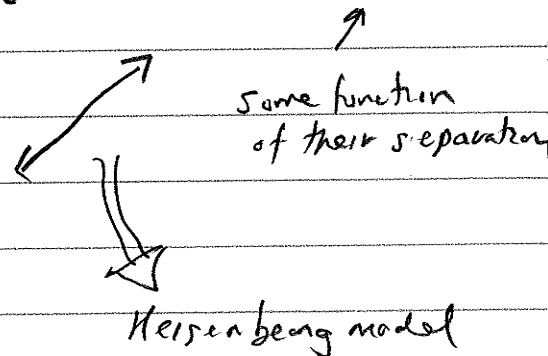 some function
of their separation
Heisenberg model